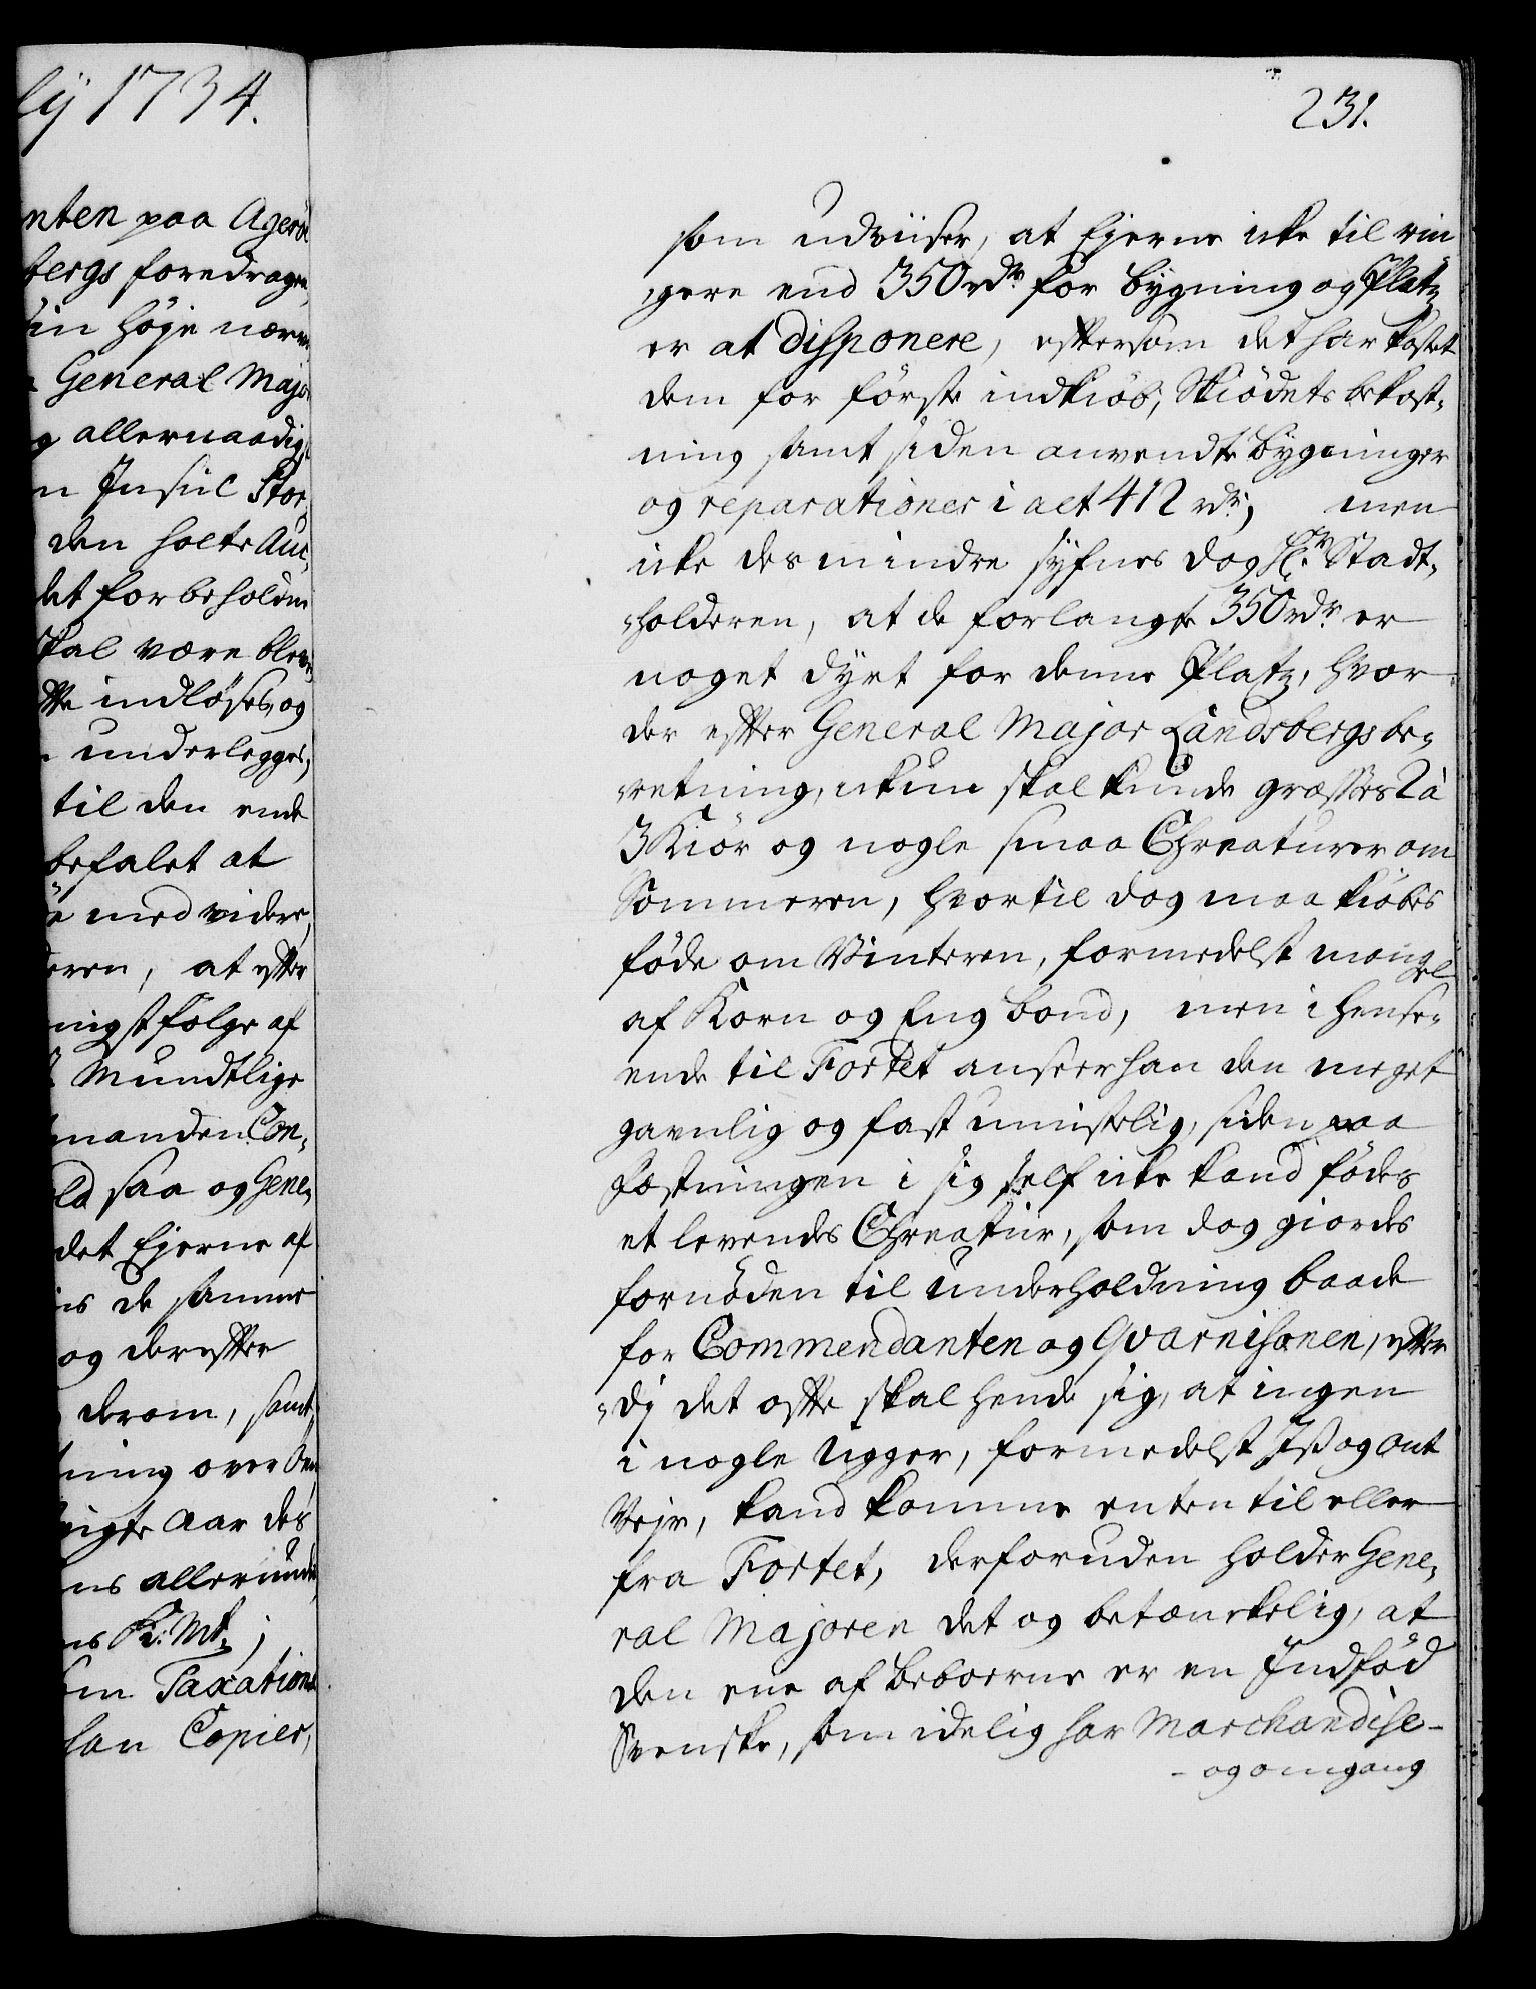 lÿ 1734.
nten paa Agerøe
bergs foredragen
in høje nærv
General Major
allernaadigst
n Insul Stor
den holte Auc,
det forbeholden
skal være bleven
tte indløses, og
underlegges,
til den ende
befalet at
med videre,
eren, at efter
ningst følge af
Mundtlige
manden Con,
ld saa og Gene,
det Ejerne af
de samme
og derefter
derom, samt
ning over Den
rigste Aar des
ns allerunder
ns K: Mt;
Taxations
han Copier,
231.
som udviiser, at Ejerne icke til rin
gere end 350 rdr for bygning og Platz
er at disponere, eftersom det har kostet
dem for første indkiøb, Skiødets bekost,
ning samt siden anvendte bygninger
og reparationer i alt 412 rdr; men
icke des mindre syfnes dog Hr. Stadt,
holderen, at de forlangte 350 rdr er
noget dyrt for denne Platz, hvor
der efter General Major Landsbergs be,
retning, ickun skal kunde græsses 2 à
3 Kiør og nogle smaa Chreaturer om
Sommeren, hvortil dog maa kiøbes
føde om Vinteren, formedelst mangel
af Korn og Eng bond, men i hense,
ende til Fortet anseer han den meget
gavnlig og fast umistelig, siden paa
Fæstningen i sig self icke kand fødes
et levendes Chreatur, som dog giordes
fornøden til underholdning baade
for Commendanten og Gvarnisonen, efter
dj det ofte skal hende sig, at ingen
i nogle Ugger, formedelst Iß og ont
Vejr, kand komme enten til eller
fra Fortet, derforuden holder Gene,
ral Majoren det og betænckelig, at
den ene af beboerne er en Indfød
Svenske, som idelig har Marchandise
- og omgang